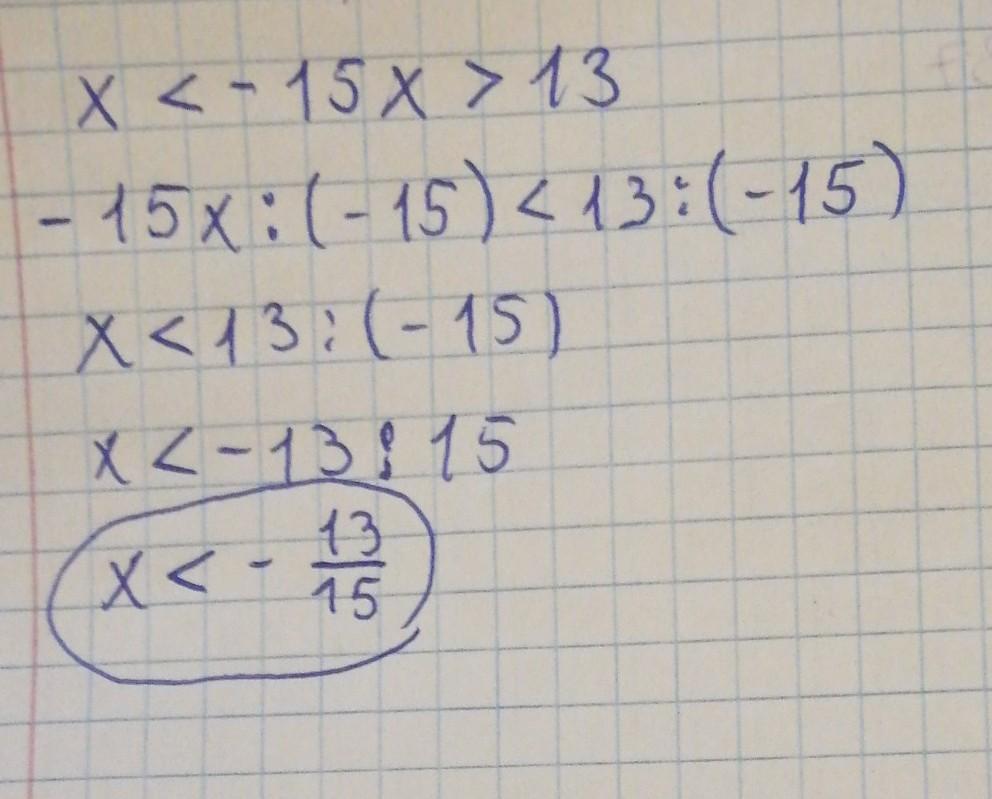 x < - 15x > 13
- 15x : (- 15) < 13 : (- 15)
x < 13 : (- 15)
x < - 13 : 15
x < - 13/15